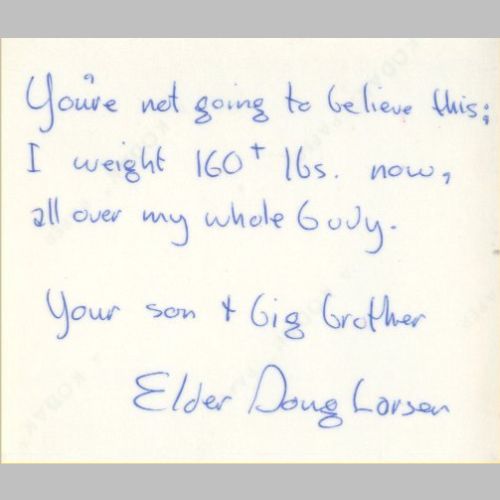 You're not going to believe this;
I weight 160+ lbs. now,
all over my whole body.
Your son + big brother
Elder Doug Larsen